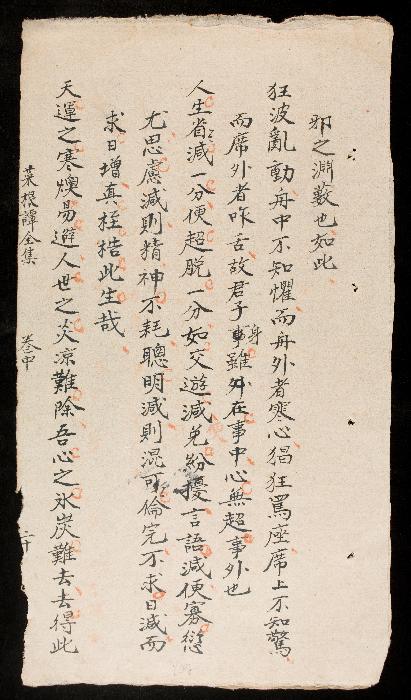 邪之淵藪也如此
狂波亂動舟中不知懼而舟外者寒心猖狂罵座席上不知驚
而席外者咋舌故君子身雖在事中心無超事外也
人生省減一分便超脫一分如交遊減免紛擾言語減便寡愆
尤思慮減則精神不耗聰明減則混可倫完不求日減而
求日增真桎梏此生哉
天運之寒燠易避人世之炎涼難除吾心之冰炭難去去得此
菜根譚全集 卷中
二十